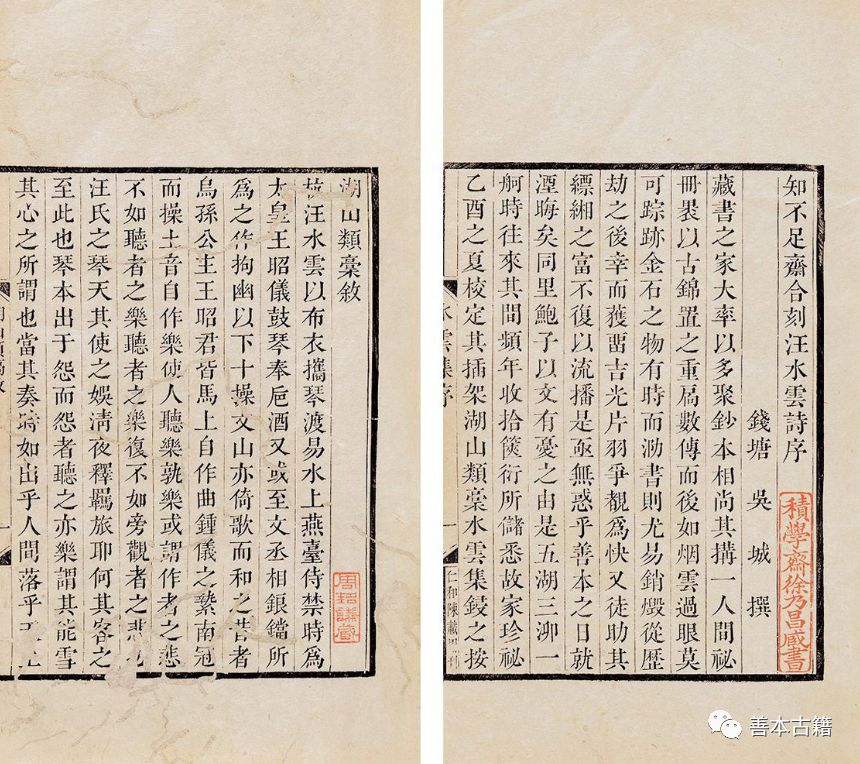 知不足齋合刻汪水雲詩序
錢塘 吳 城 撰
積學齋徐乃昌藏書
藏書之家大率以多聚鈔本相尚其搆一人間祕
冊裝以古錦置之重扃數傳而後如烟雲過眼莫
可踪跡金石之物有時而泐書則尤易銷燬從歷
劫之後幸而獲畱吉光片羽爭覩爲快又徒助其
縹緗之富不復以流播是亟無惑乎善本之日就
湮晦矣同里鮑子以文有憂之由是五湖三泖一
舸時往來其間頻年收拾篋衍所儲悉故家珍祕
乙酉之夏校定其插架湖山類稾水雲集鋟之按
水雲集序
一
仁和陳載
湖山類稾敘
杭汪水雲以布衣攜琴渡易水上燕臺侍禁時爲
太皇王昭儀鼓琴奉巵酒又或至文丞相銀鐺所
爲之作拘幽以下十操文山亦倚歌而和之昔者
烏孫公主王昭君皆馬上自作曲鍾儀之縶南冠
而操土音自作樂使人聽樂孰樂或謂作者之悲
不如聽者之樂聽者之樂復不如旁觀者之悲
汪氏之琴天其使之娛淸夜釋羈旅耶何其客之
至此也琴本出于怨而怨者聽之亦樂謂其能雪
其心之所謂也當其奏時如出乎人間落乎
善本古籍